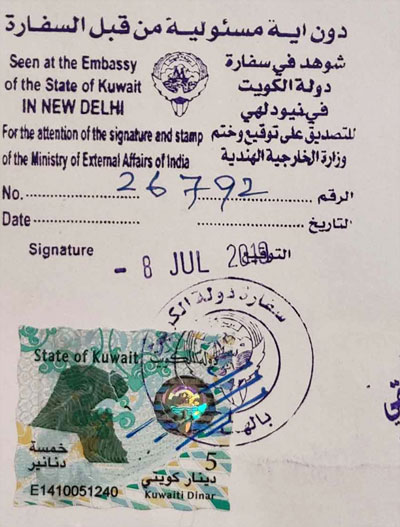 دون اية مسئولية من قبل السفارة
Seen at the Embassy
of the State of Kuwait
IN NEW DELHI
For the attention of the signature and stamp
of the Ministry of External Affairs of India
شوهد في سفارة
دولة الكويت
في نيودلهي
للتصديق على توقيع وختم
وزارة الخارجية الهندية
No. 26792 الرقم
Date التاريخ
Signature التوقيع
- 8 JUL
سفارة دولة
State of Kuwait دولة الكويت
خمسة
دنانير
5
دينار كويتي
E1410051240 Kuwaiti Dinar